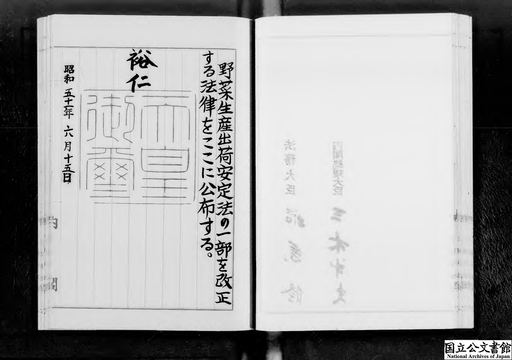 野菜生産出荷安定法の一部を改正
する法律をここに公布する。
裕仁
天皇
御璽
昭和五十一年六月十五日
内閣
法務大臣
国立公文書館
National Archives of Japan